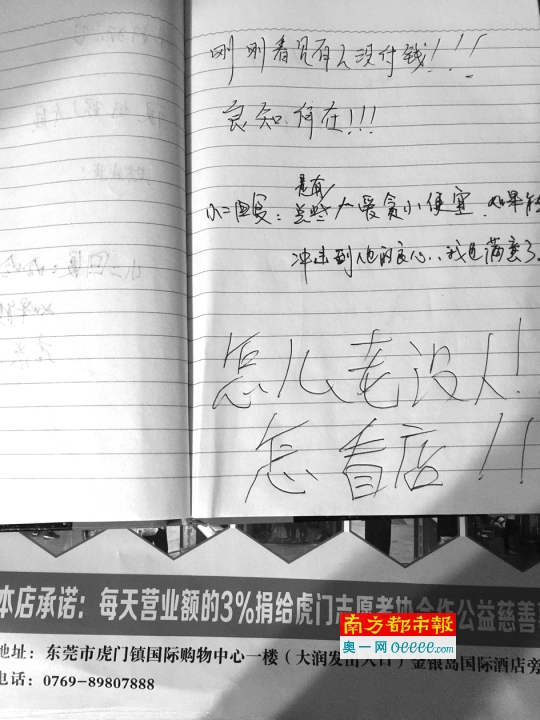 刚刚看见有人没付钱！！！
良知何在！！！
是有
小二回复：些人爱贪小便宜，如果能
冲击到他的良心，我也满意了。
怎么老没人！
怎看店！！
本店承诺：每天营业额的3%捐给虎门志愿者协会作公益慈善
地址：东莞市虎门镇国际购物中心一楼（大润发出入口）金银岛国际酒店旁
电话：0769-89807888
南方都市報
奥一网 oeeee.com